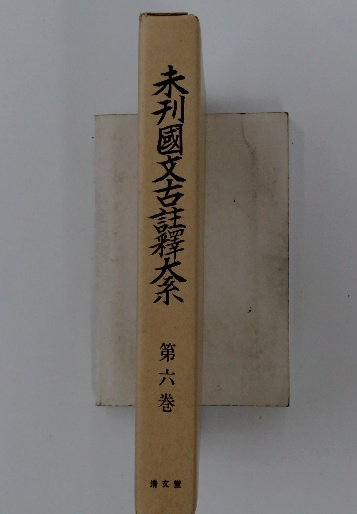 未刊國文古註釋大系
第六巻
清文堂